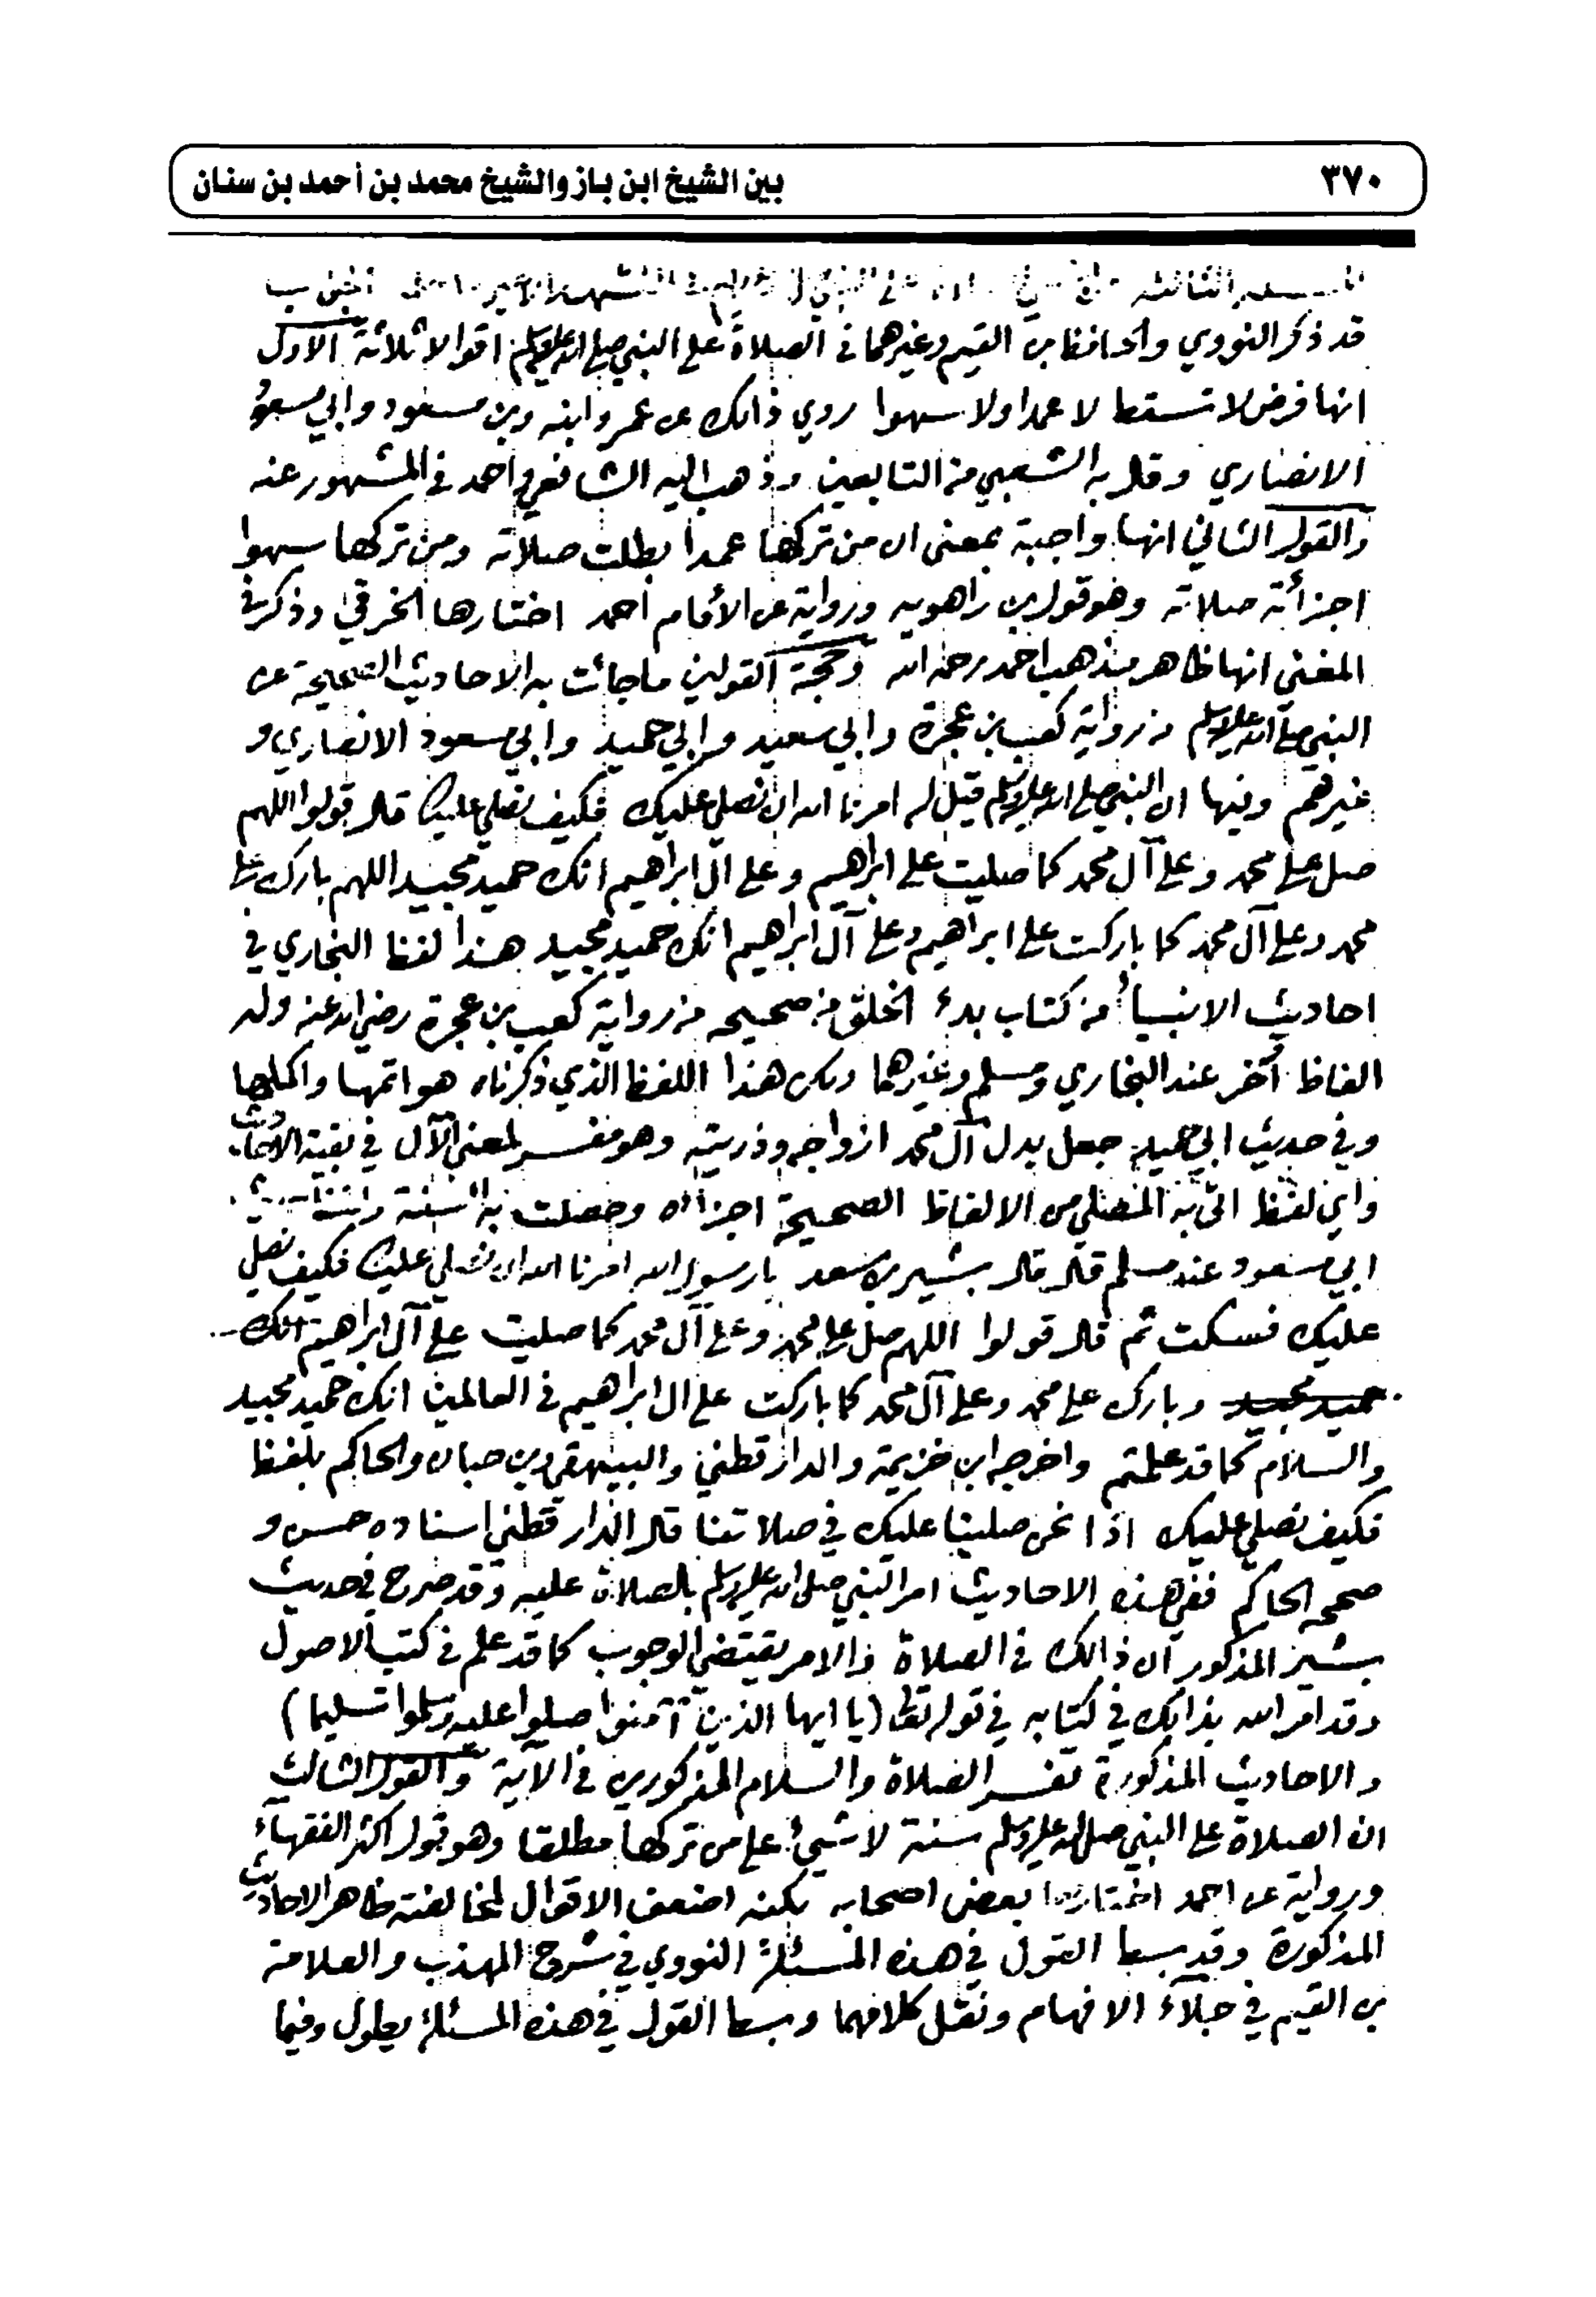 ٣٧٠
بين الشيخ ابن باز والشيخ محمد بن أحمد بن سنان
الثالثة
قد ذكر النووي والحافظ بن القيم وغيرهما في الصلاة على النبي صلى الله عليه وسلم اقوالا ثلاثة الاول
انها فرض لا تسقط لا عمدا ولا سهوا روي ذالك عن عمر وابنه وبن مسعود وابي مسعود
الانصاري وقال به الشعبي من التابعين وذهب اليه الشافعي واحمد في المشهور عنه
والقول الثاني انها واجبة بمعنى ان من تركها عمدا بطلت صلاته ومن تركها سهوا
اجزأته صلاته وهو قول بن راهويه ورواية عن الأمام احمد اختارها الخرقي وذكر في
المغني انها ظاهر مذهب احمد رحمه الله وحجة القولين ماجائت به الاحاديث الصحيحة عن
النبي صلى الله عليه وسلم من رواية كعب بن عجرة وابي سعيد وابي حميد وابي مسعود الانصاري و
غيرهم وفيها ان النبي صلى الله عليه وسلم قيل له امرنا الله ان نصلي عليك فكيف نصلي عليك قال قولوا اللهم
صل على محمد وعلى آل محمد كما صليت على ابراهيم وعلى ال ابراهيم انك حميد مجيد اللهم بارك على
محمد وعلى آل محمد كما باركت على ابراهيم وعلى آل ابراهيم انك حميد مجيد هذا لفظ البخاري في
احاديث الانبيأ من كتاب بدء الخلق من صحيحه من رواية كعب بن عجرة رضي الله عنه وله
الفاظ أخر عند البخاري ومسلم وغيرهما ولكن هذا اللفظ الذي ذكرناه هو اتمها واكملها
وفي حديث ابي حميد جعل بدل آل محمد ازواجه وذريته وهو مفسر لمعنى الآل في بقية الاحاديث
واي لفظ اتى به المصلي من الالفاظ الصحيحة اجزاه وحصلت به السنة
ابي مسعود عند مسلم قال قال بشير بن سعد يا رسول الله امرنا الله ان نصلي عليك فكيف نصلي
عليك فسكت ثم قال قولوا اللهم صل على محمد وعلى آل محمد كما صليت على آل ابراهيم انك
حميد مجيد وبارك على محمد وعلى آل محمد كما باركت على ال ابراهيم في العالمين انك حميد مجيد
والسلام كما قد علمتم واخرجه ابن خزيمة والدارقطني والبيهقي وبن حبان والحاكم بلفظ
فكيف نصلي عليك اذا نحن صلينا عليك في صلاتنا قال الدارقطني اسناده حسن و
صححه الحاكم ففي هذه الاحاديث امر النبي صلى الله عليه وسلم بالصلاة عليه وقد صرح في حديث
بشير المذكور ان ذالك في الصلاة والامر يقتضي الوجوب كما قد علم في كتب الاصول
وقد امر الله بذالك في كتابه في قوله تعالى (يا ايها الذين آمنوا صلوا عليه وسلموا تسليما)
والاحاديث المذكورة تفسر الصلاة والسلام المذكورين في الآية والقول الثالث
ان الصلاة على النبي صلى الله عليه وسلم سنة لا شيئ على من تركها مطلقا وهو قول اكثر الفقهآء
ورواية عن احمد اختارها بعض اصحابه لكنه اضعف الاقوال لمخالفته ظاهر الاحاديث
المذكورة وقد بسط القول في هذه المسئلة النووي في شرح المهذب والعلامة
بن القيم في جلآء الافهام ونقل كلامهما وبسط القول في هذه المسئلة يطول وفيما